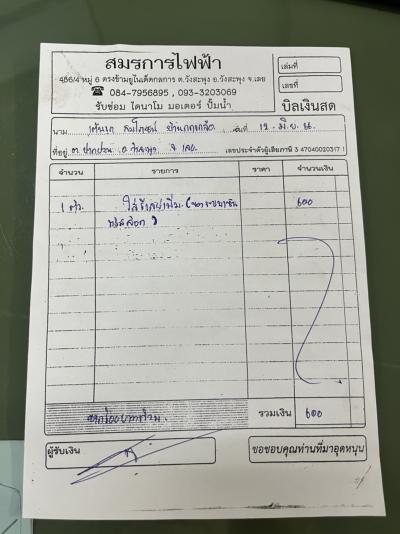 สมรการไฟฟ้า
486/4 หมู่ 6 ตรงข้ามยูไนเต็ดกลการ ต.วังสะพุง อ.วังสะพุง จ.เลย
☎ 084-7956895 , 093-3203069
รับซ่อม ไดนาโม มอเตอร์ ปั๊มน้ำ
เล่มที่
เลขที่
บิลเงินสด
นาม วันที่ 12 - มิ.ย. 66
ที่อยู่ ต. ปากปวน อ. วังสะพุง จ. เลย เลขประจำตัวผู้เสียภาษี 3 47040020317 1
จำนวน รายการ ราคา จำนวนเงิน
1 ตัว 600
หกร้อยบาทถ้วน รวมเงิน 600
ผู้รับเงิน
ขอขอบคุณท่านที่มาอุดหนุน